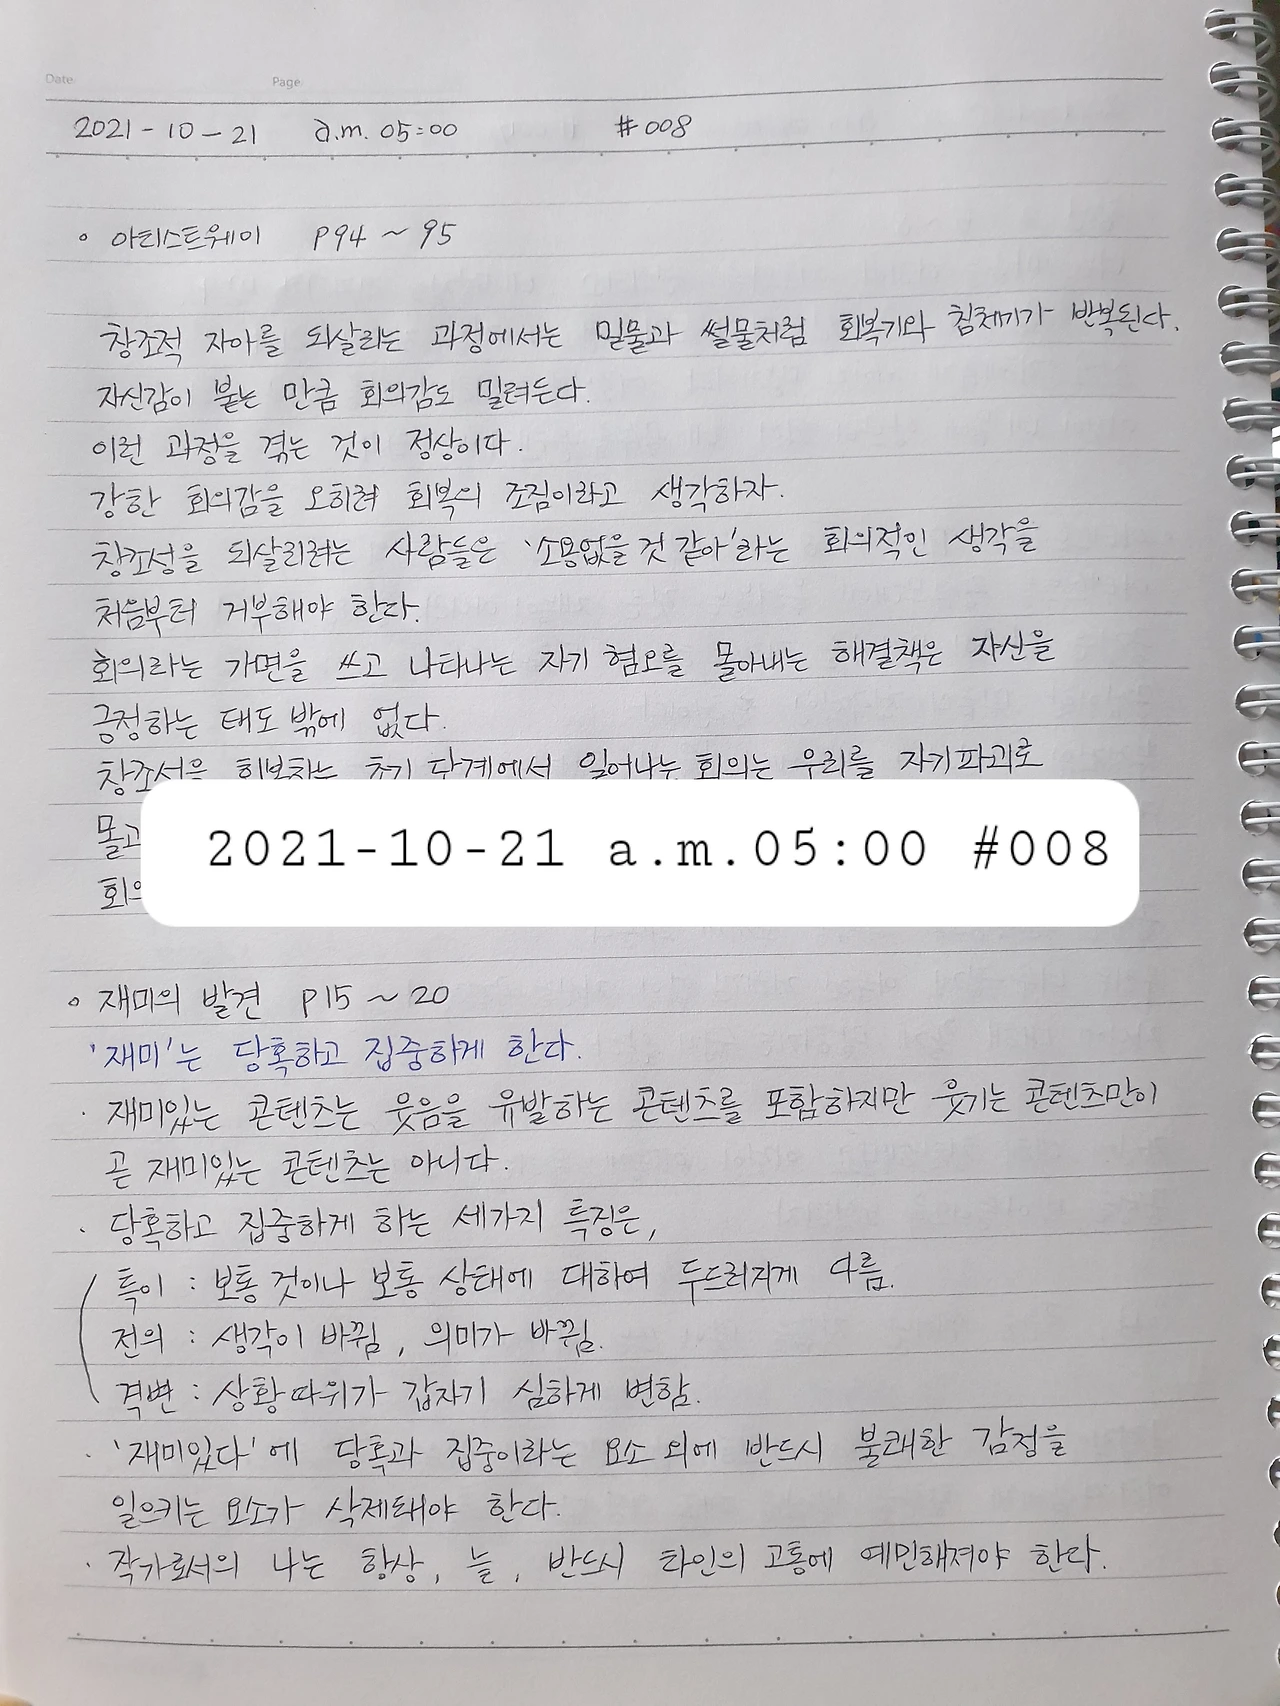 Date Page
2021-10-21 a.m. 05:00 #008
◦ 아티스트웨이 P94 ~ 95
창조적 자아를 되살리는 과정에서는 밀물과 썰물처럼 회복기와 침체기가 반복된다.
자신감이 붙는 만큼 회의감도 밀려든다.
이런 과정을 겪는 것이 정상이다.
강한 회의감을 오히려 회복의 조짐이라고 생각하자.
창조성을 되살리려는 사람들은 '소용없을 것 같아'라는 회의적인 생각을
처음부터 거부해야 한다.
회의라는 가면을 쓰고 나타나는 자기 혐오를 몰아내는 해결책은 자신을
긍정하는 태도 밖에 없다.
창조성을 회복하는 초기 단계에서 일어나는 회의는 우리를 자기파괴로
2021-10-21 a.m.05:00 #008
◦ 재미의 발견 P15 ~ 20
'재미'는 당혹하고 집중하게 한다.
· 재미있는 콘텐츠는 웃음을 유발하는 콘텐츠를 포함하지만 웃기는 콘텐츠만이
곧 재미있는 콘텐츠는 아니다.
· 당혹하고 집중하게 하는 세가지 특징은,
특이 : 보통 것이나 보통 상태에 대하여 두드러지게 다름.
전의 : 생각이 바뀜, 의미가 바뀜.
격변 : 상황따위가 갑자기 심하게 변함.
· '재미있다'에 당혹과 집중이라는 요소 외에 반드시 불쾌한 감정을
일으키는 요소가 삭제돼야 한다.
· 작가로서의 나는 항상, 늘, 반드시 타인의 고통에 예민해져야 한다.